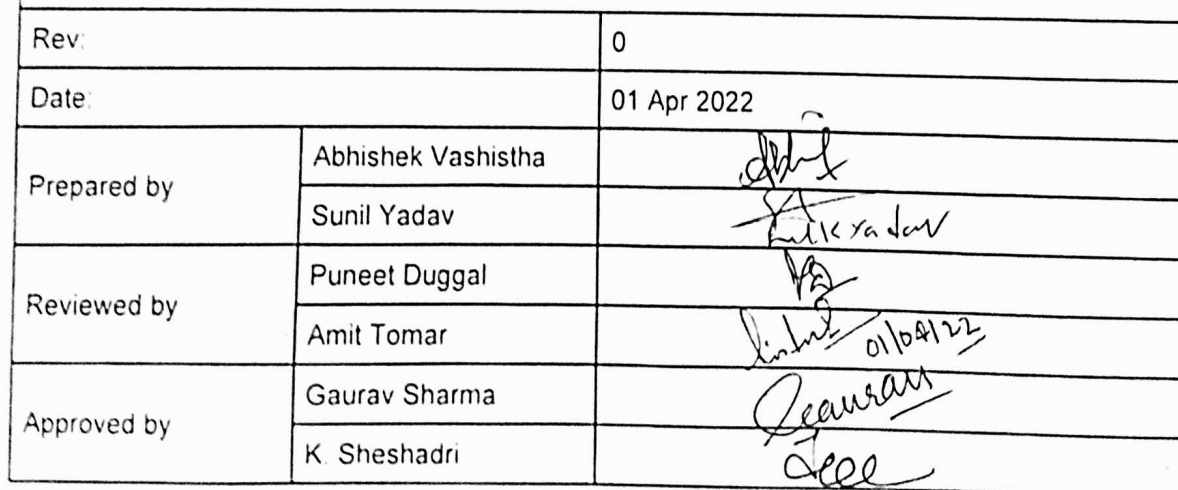 Rev: 0
Date: 01 Apr 2022
Prepared by
Abhishek Vashistha
Sunil Yadav
Reviewed by
Puneet Duggal
Amit Tomar
01/04/22
Approved by
Gaurav Sharma
Gaurav
K. Sheshadri